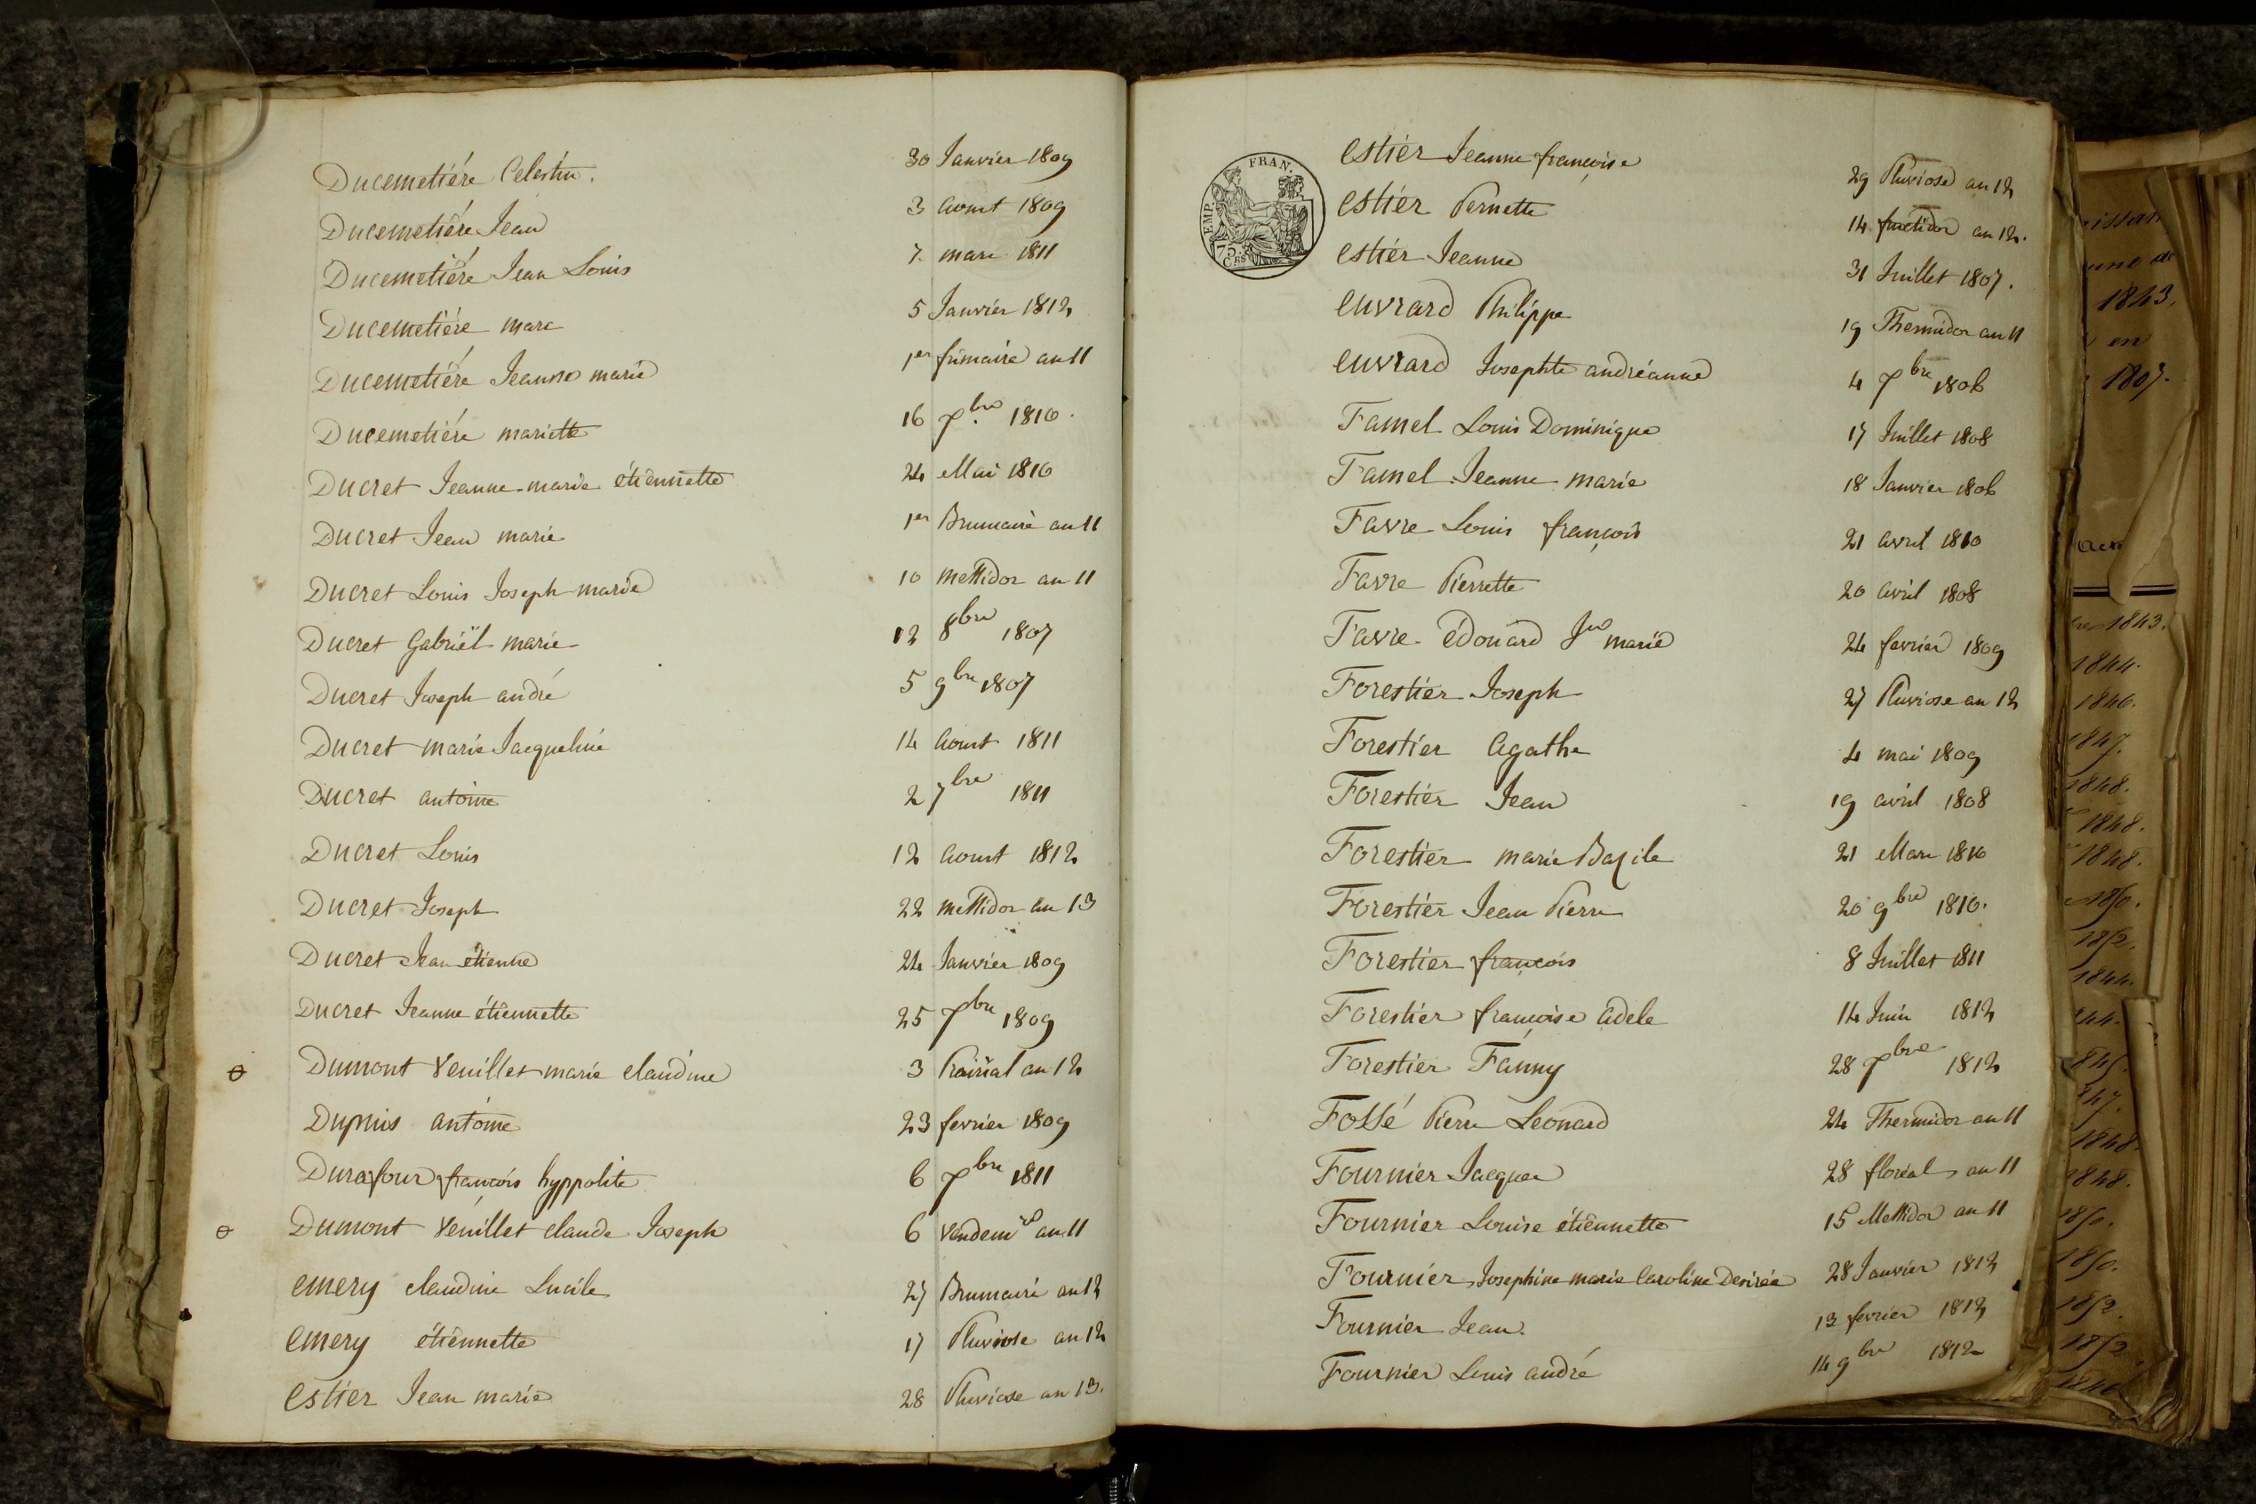 Ducemetiére Celestin. 30 Janvier 1809
Ducemetiére Jean 3 aoust 1809
Ducemetiére Jean Louis 7 mars 1811
Ducemetiére marc 5 Janvier 1812
Ducemetiére Jeanne marie 1er frimaire an 11
Ducemetiére mariette 16 7bre 1810.
Ducret Jeanne marie étiennette 24 Mai 1810
Ducret Jean marie 1er Brumaire an 11
Ducret Louis Joseph marie 10 messidor an 11
Ducret Gabriël marie 12 8bre 1807
Ducret Joseph andré 5 9bre 1807
Ducret marie Jacqueline 14 aoust 1811
Ducret antoine 2 7bre 1811
Ducret Louis 12 aoust 1812
Ducret Joseph 22 messidor an 13
Ducret Jean etienne 24 Janvier 1809
Ducret Jeanne étiennette 25 7bre 1809
Dumont Veuillet marie claudine 3 Prairial an 12
Dupuis antoine 23 fevrier 1809
Durafour francois hyppolite 6 7bre 1811
Dumont Veuillet claude Joseph 6 Vendemre an 11
emery claudine Lucile 27 Brumaire an 12
emery étiennette 17 Pluviose an 12
estier Jean marie 28 Pluviose an 13.
EMP. FRAN.
75 CES
estier Jeanne françoise 29 Pluviose an 12
estiér Pernette 14 fructidor an 12.
estiér Jeanne 31 Juillet 1807.
euvrard Philippe 19 Thermidor an 11
euvrard Josephte andréanne 4 7bre 1806
Famel Louis Dominique 17 Juillet 1808
Famel Jeanne marie 18 Janvier 1806
Favre Louis françois 21 avril 1810
Favre Pierrette 20 avril 1808
Favre édouard marie 24 fevrier 1809
Forestier Joseph 27 Pluviose an 12
Forestier agathe 4 mai 1809
Forestiér Jean 19 avril 1808
Forestier marie Bazile 21 Mars 1810
Forestier Jean Pierre 20 9bre 1810.
Forestier françois 8 Juillet 1811
Forestier francoise adele 14 Juin 1812
Forestier Fanny 28 7bre 1812
Fossé Pierre Leonard 24 Thermidor an 11
Fournier Jacques 28 floréal an 11
Fournier Louise étiennette 15 Messidor an 11
Fournier Josephine marie Caroline Desirée 28 Janvier 1812
Fournier Jean. 13 fevrier 1812
Fournier Louis andré 14 9bre 1812
1843.
en
1807.
1843.
1844.
1846.
1847.
1848.
1848.
1848.